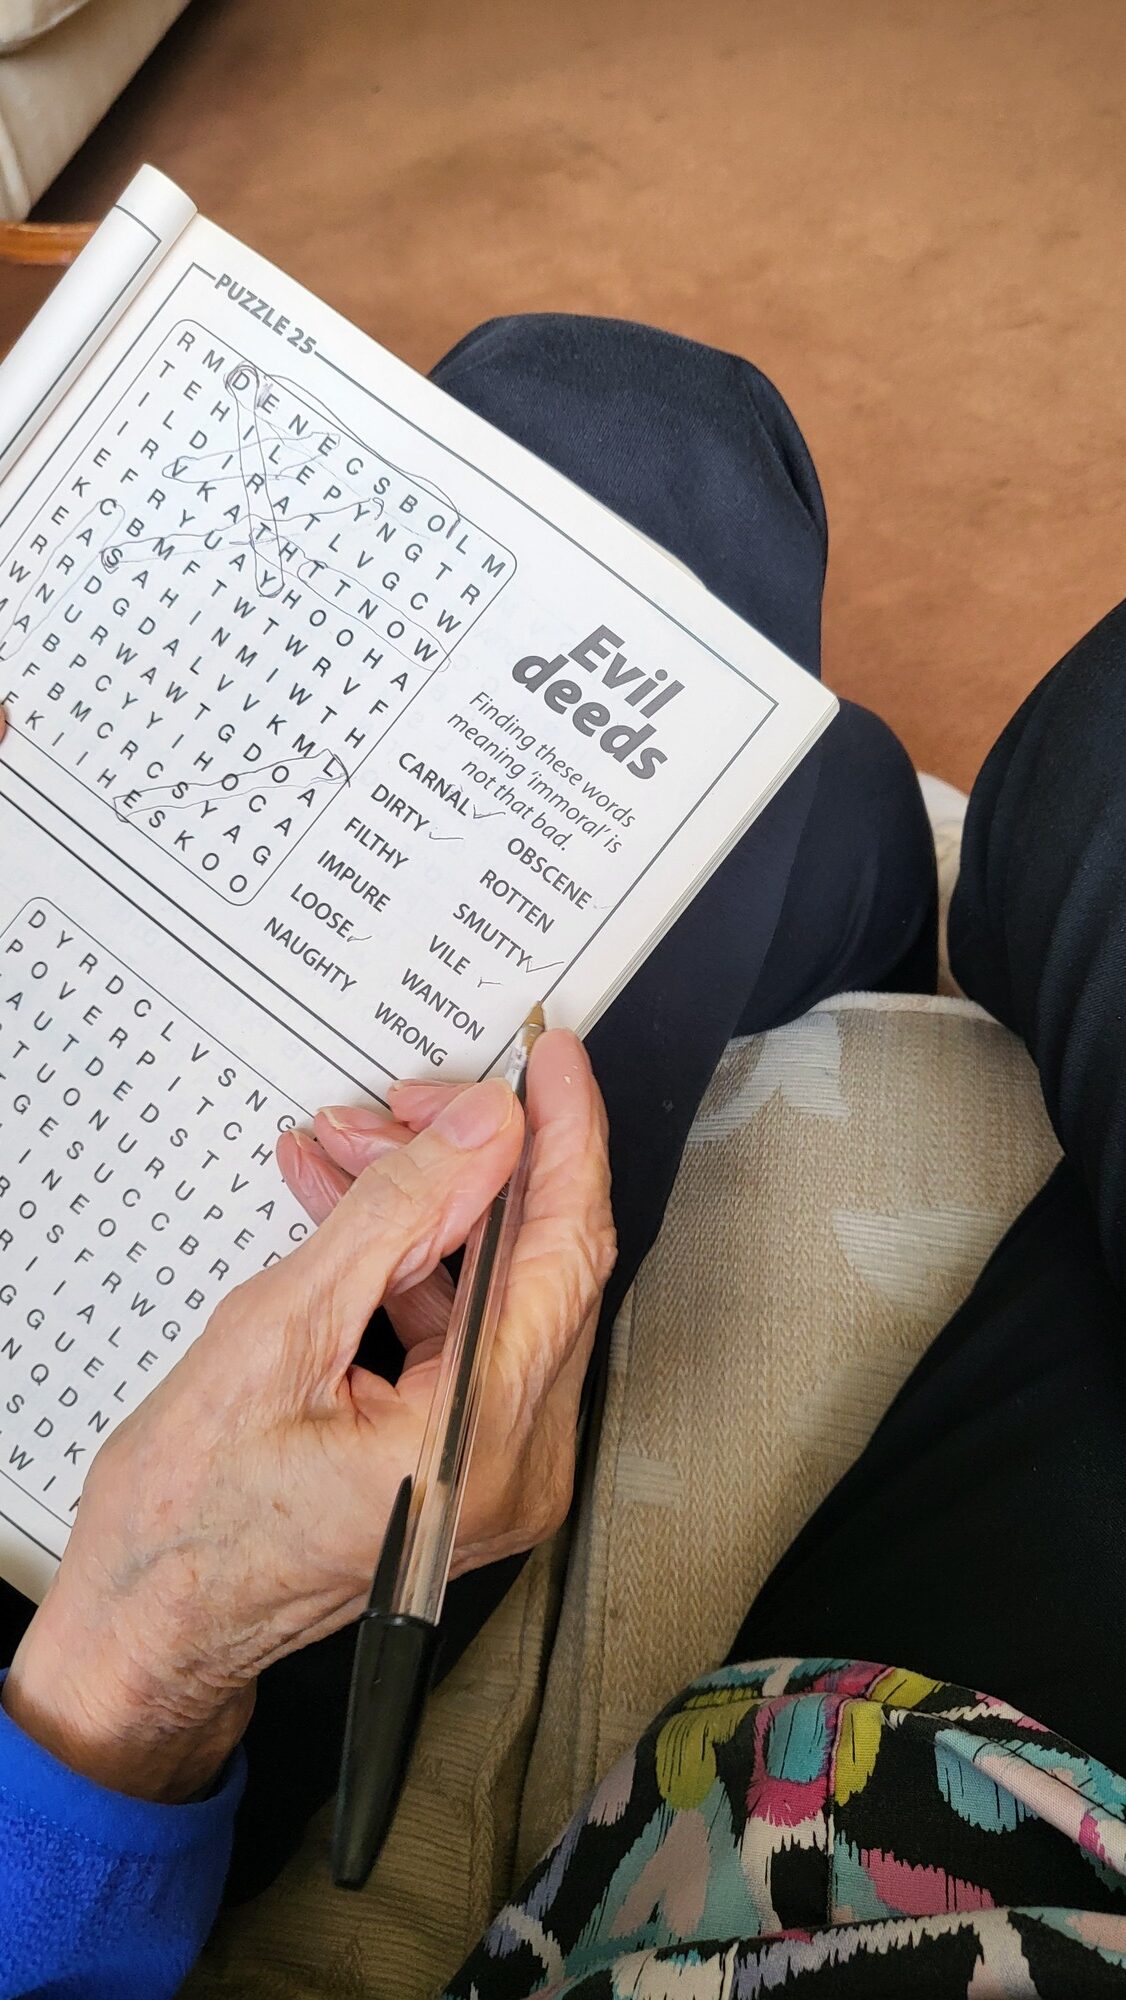 PUZZLE 25
R M D E N E C S B O L M
T E H I L E P Y N G T R
I L D I R A T L V G C W
I R V K A T H T T N O W
E F R Y U A Y H O O H A
K C B M F T W T W R V F
E A S A H I N M I W T H
R R D G D A L V V K M L
W N U R W A W T G D O A
A B P C Y Y I H O C A
F B M C R C S Y A G
K I I H E S K O O
Evil
deeds
Finding these words
meaning 'immoral' is
not that bad.
CARNAL
DIRTY
FILTHY
IMPURE
LOOSE
NAUGHTY
OBSCENE
ROTTEN
SMUTTY
VILE
WANTON
WRONG
D Y R D C L V S N G
P O V E R P I T C H
A U T D E D S T V A C
T U O N U R U P E D
G E S U C C B R
I N E O E O B
R O S F R W G
R I I A L E
G G U E L
N Q D N
S D K
W I